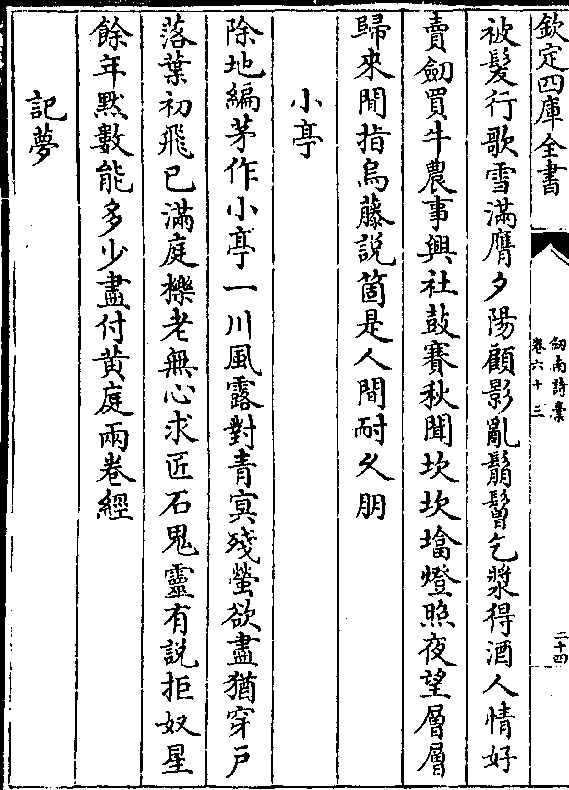 欽定四庫全書
劒南詩藁
卷六十三
二十四
被髪行歌雪滿膺夕陽顧影亂鬅鬙乞漿得酒人情好
賣劒買牛農事興社鼓賽秋聞坎坎墖燈照夜望層層
歸來閒指烏藤說箇是人間耐久朋
小亭
除地編茅作小亭一川風露對青㝠殘螢欲盡猶穿戶
落葉初飛已滿庭櫟老無心求匠石鬼靈有說拒奴星
餘年黙數能多少盡付黄庭兩卷經
記夢